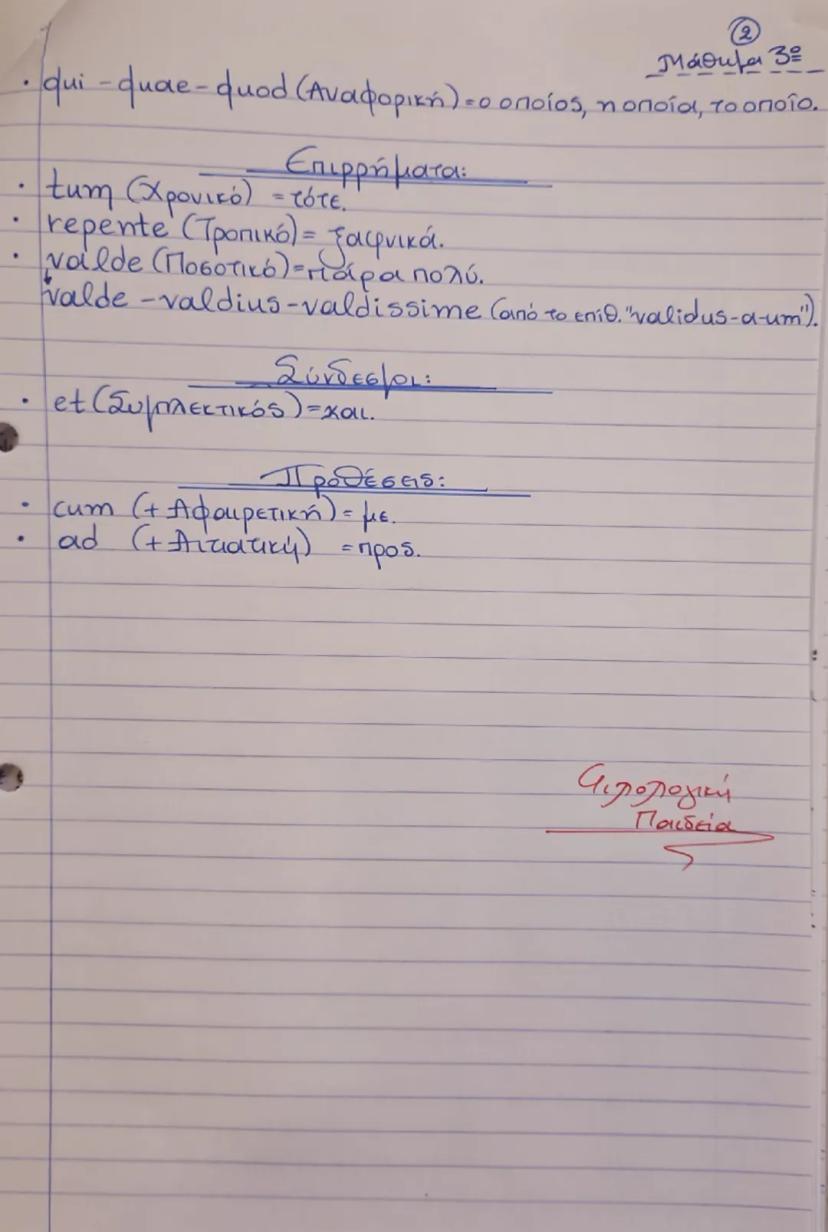 2
Μάθημα 3º
• qui - quae - quod (Αναφορική) = ο οποίος, η οποία, το οποίο.
Επιρρήματα:
• tum (Χρονικό) = τότε.
• repente (Τροπικό) = ξαφνικά.
• valde (Ποσοτικό) = πάρα πολύ.
valde - valdius - valdissime (από το επίθ. "validus-a-um").
Σύνδεσμοι:
• et (Συμπλεκτικός) = και.
Προθέσεις:
• cum (+ Αφαιρετική) = με.
• ad (+ Αιτιατική) = προς.
Φιλολογική
Παιδεία